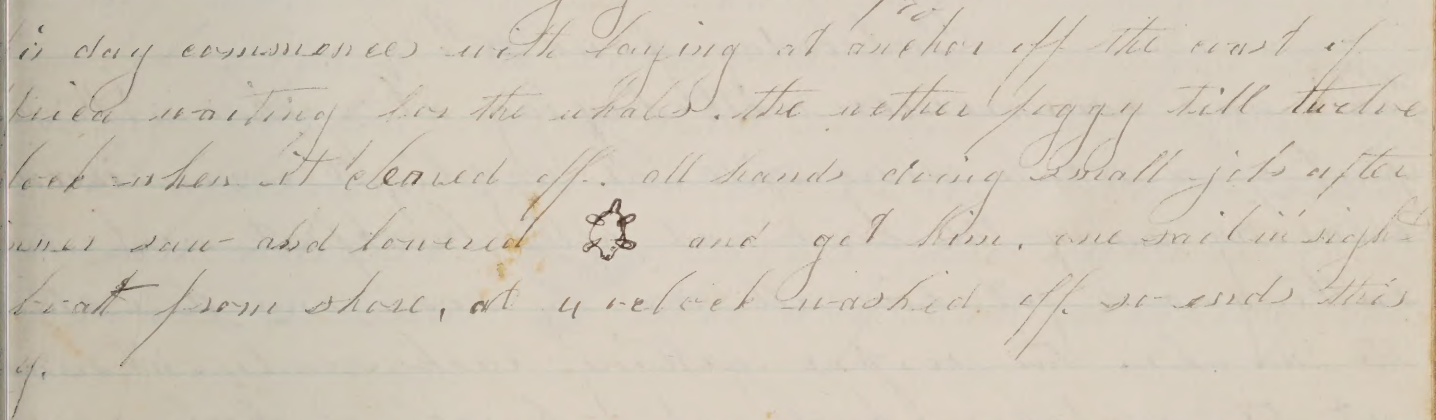 is day commences with laying at anchor off the coast of
frica waiting for the whales. the wether foggy till twelve
lock when it cleared off. all hands doing small jobs after
nner saw and lowered and got him. one sail in sight
boat from shore, at 4 oclock washed off. so ends this
y.